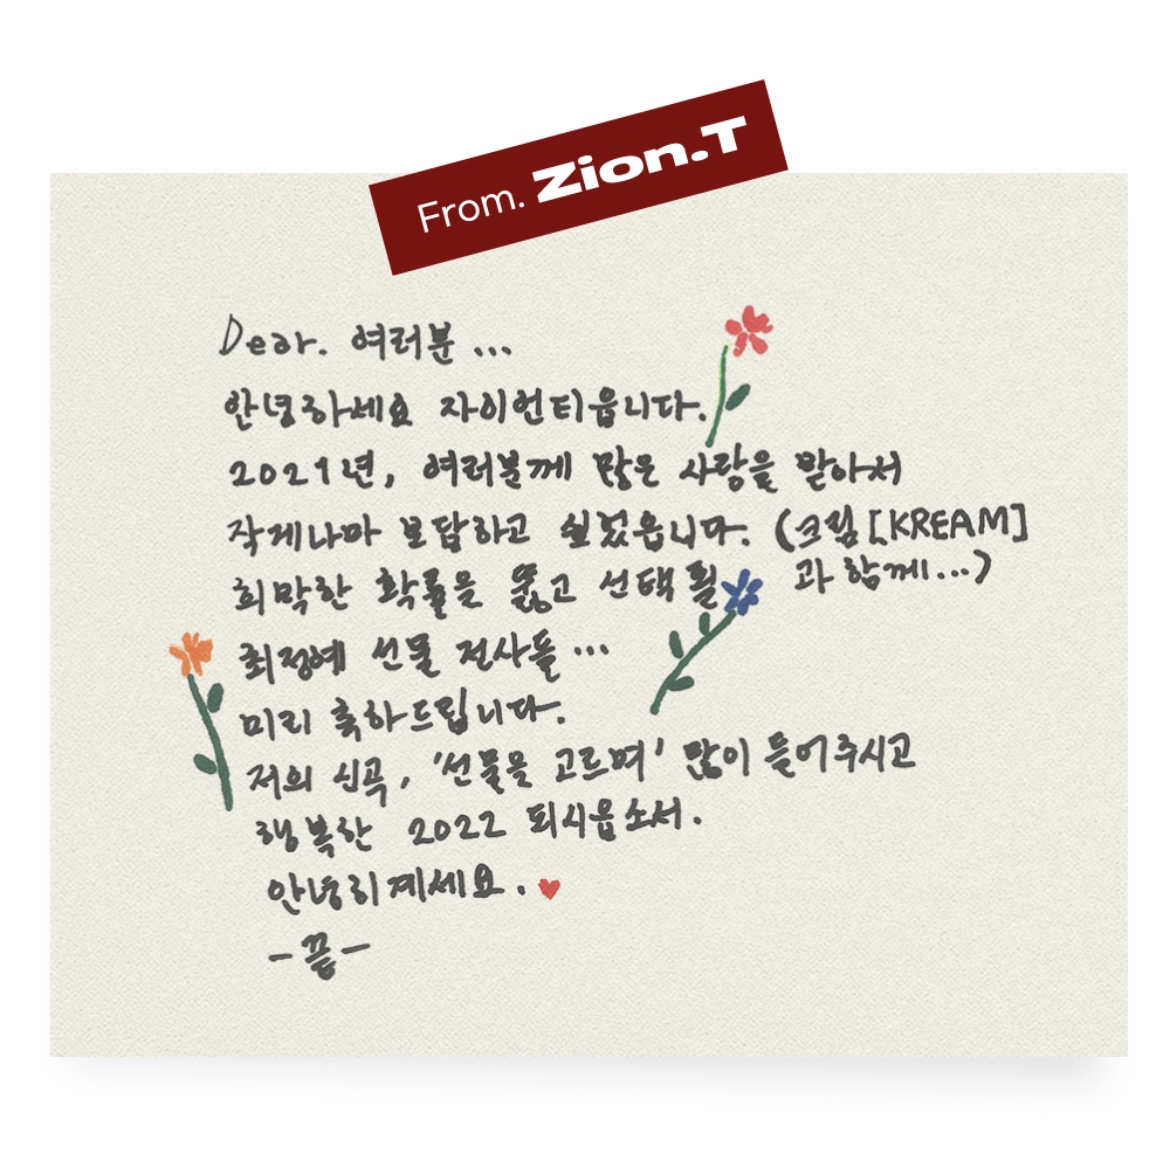 From. Zion.T
Dear. 여러분 ...
안녕하세요 자이언티읍니다.
2021년, 여러분께 많은 사랑을 받아서
작게나마 보답하고 싶었읍니다. (크림[KREAM]
과 함께...)
희박한 확률을 뚫고 선택 될
최정예 선물 전사들 ...
미리 축하드립니다.
저의 신곡, '선물을 고르며' 많이 들어주시고
행복한 2022 되시읍소서.
안녕히계세요. ♥
-끝-